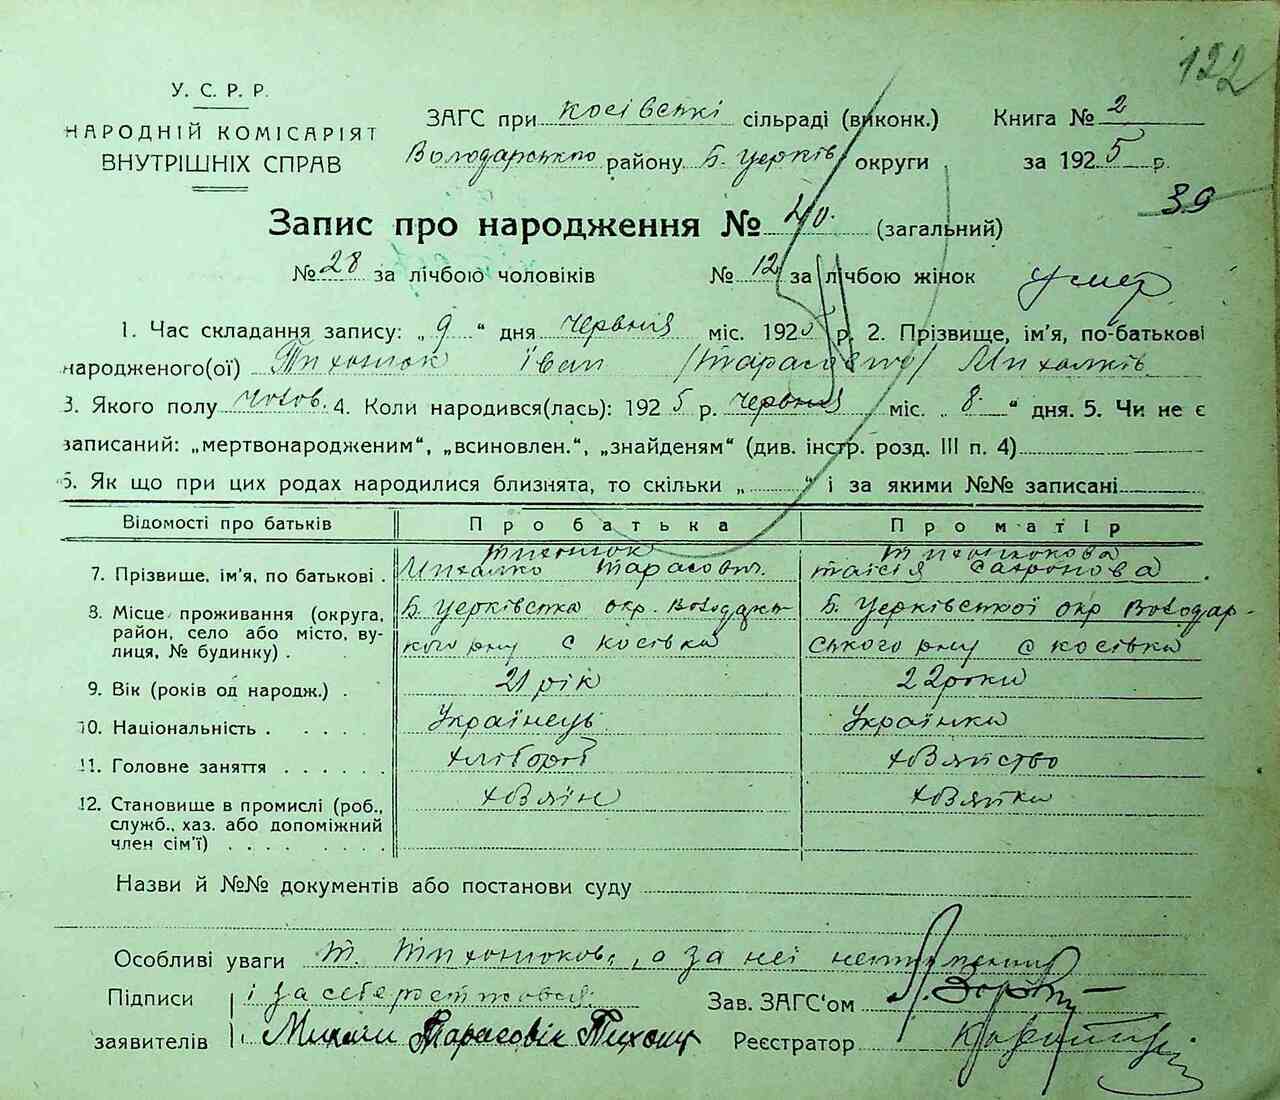 122
У. С. Р. Р.
НАРОДНІЙ КОМІСАРІЯТ
ВНУТРІШНІХ СПРАВ
ЗАГС при Косівскі сільраді (виконк.) Книга № 2
Володарського району Б. Церків округи за 1925 р.
39
Запис про народження № 40. (загальний)
№ 28 за лічбою чоловіків № 12 за лічбою жінок умер
1. Час складання запису: „ 9 “ дня червня міс. 1925 р. 2. Прізвище, ім'я, по-батькові
народженого(ої) Тихонюк Іван /Тарасович/ Михалків
3. Якого полу чолов. 4. Коли народився(лась): 1925 р. червня міс. „ 8 “ дня. 5. Чи не є
записаний: „мертвонародженим“, „всиновлен.“, „знайденям“ (див. інстр. розд. III п. 4)
6. Як що при цих родах народилися близнята, то скільки „ “ і за якими №№ записані
Відомості про батьків Про батька Про матір
Тихонюк Тихонюкова
7. Прізвище, ім'я, по батькові . Михалко Тарасович. Таісія Сахронова
8. Місце проживання (округа, район, село або місто, вулиця, № будинку) . Б. Церківська окр. Володарського р-ну с Косівка Б. Церківської окр Володарського р-ну с Косівка
9. Вік (років од народж.) . 21 рік 22 роки
10. Національність . . . . . . Українець Українка
11. Головне заняття . . . . . . хлібороб хозяйство
12. Становище в промислі (роб., служб., хаз. або допоміжний член сім'ї) . . . . . . . . хозяїн хозяйка
Назви й №№ документів або постанови суду
Особливі уваги Т. Тихонюкова, а за неі неписменну
Підписи і за себе ростовся
Зав. ЗАГС'ом
заявителів Михали Тарасовік Тихонюк Реєстратор